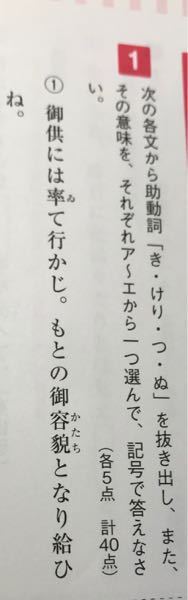 1
次の各文から助動詞「き・けり・つ・ぬ」を抜き出し、また、
その意味を、それぞれア～エから一つ選んで、記号で答えなさ
い。
（各5点 計40点）
① 御供には率て行かじ。もとの御容貌となり給ひ
ね。
ゐ
かたち